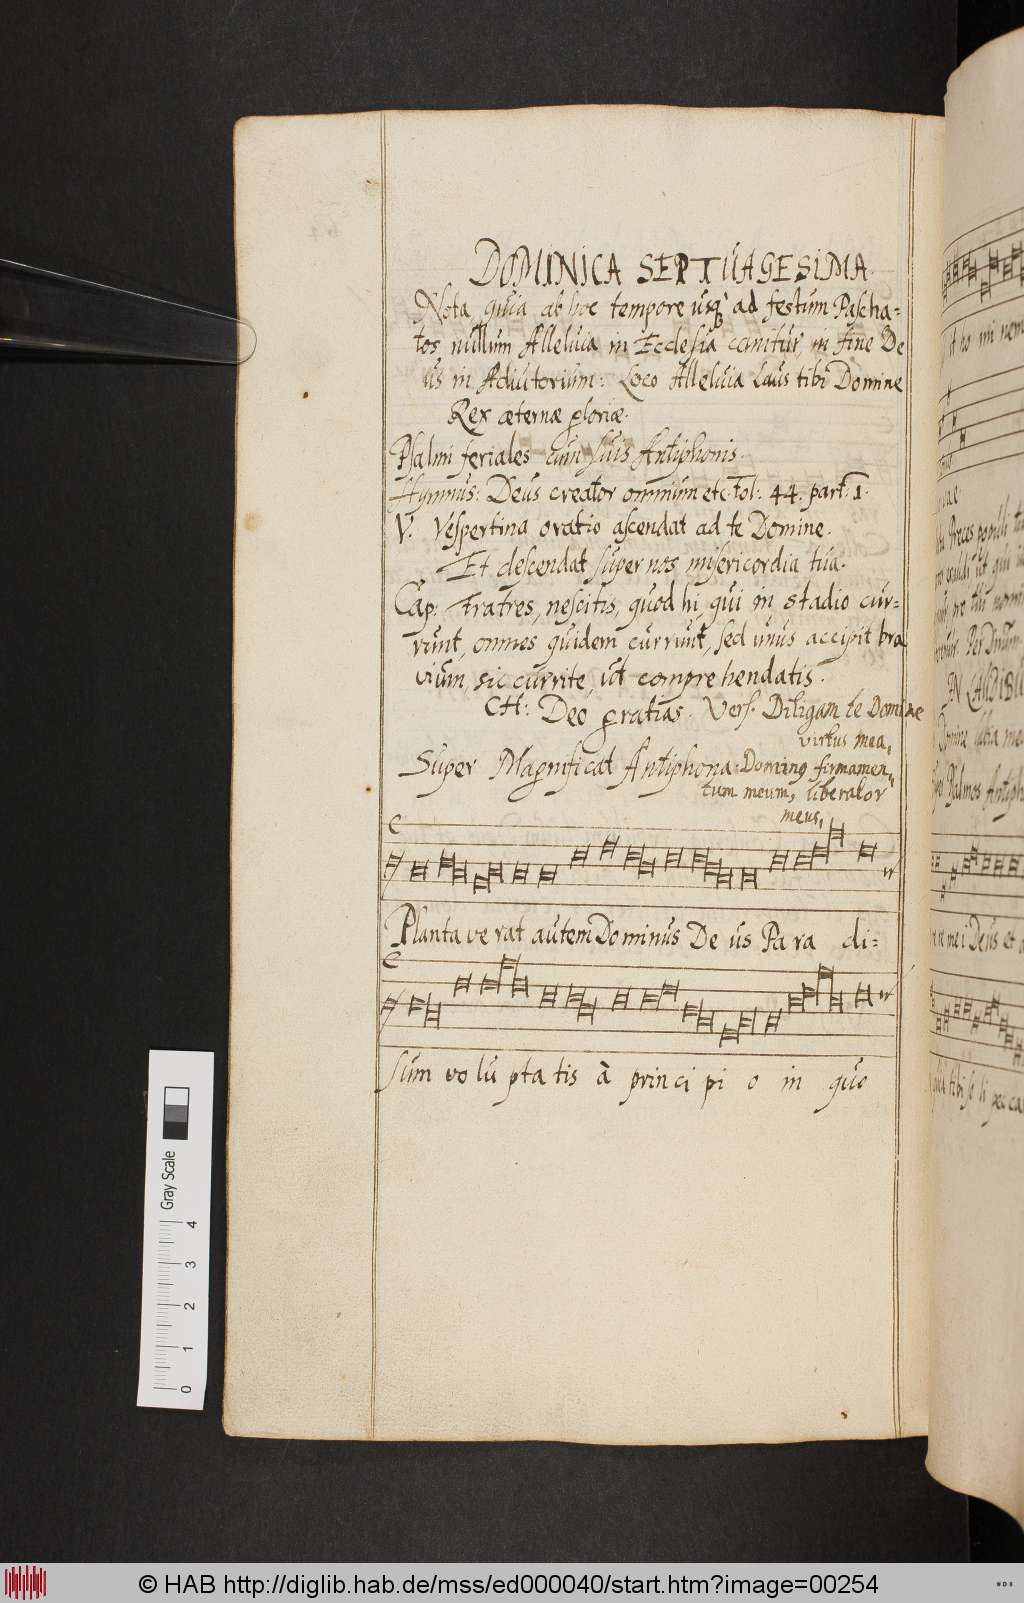 DOMINICA SEPTUAGESIMA.
Nota quia ab hoc tempore usq; ad festum Pascha-
tos nullum Alleluia in Ecclesia canitur, in fine De
us in Adiutorium: Loco Alleluia Laus tibi Domine
Rex æternæ gloriæ.
Psalmi feriales cum suis Antiphonis.
Hymnus: Deus creator omnium etc. fol: 44. part: 1.
V. Vespertina oratio ascendat ad te Domine.
Et descendat super nos misericordia tua.
Cap: Fratres, nescitis, quod hi, qui in stadio cur-
runt, omnes quidem currunt, sed unus accipit bra
vium, sic currite, ut comprehendatis.
CH: Deo gratias. Vers. Diligam te Domine
virtus mea,
Super Magnificat Antiphona. Dominus firmamen-
tum meum, liberator
meus,
C
Planta ve rat autem Do minus De us Pa ra di-
C
sum vo lu pta tis à prin ci pi o in quo
it ho mi nem
Preces populi
IN LAUDIB
Psalmos Antiph
re re me i Deus et
tibi so li pec ca
Gray Scale
4
3
2
1
0
© HAB http://diglib.hab.de/mss/ed000040/start.htm?image=00254